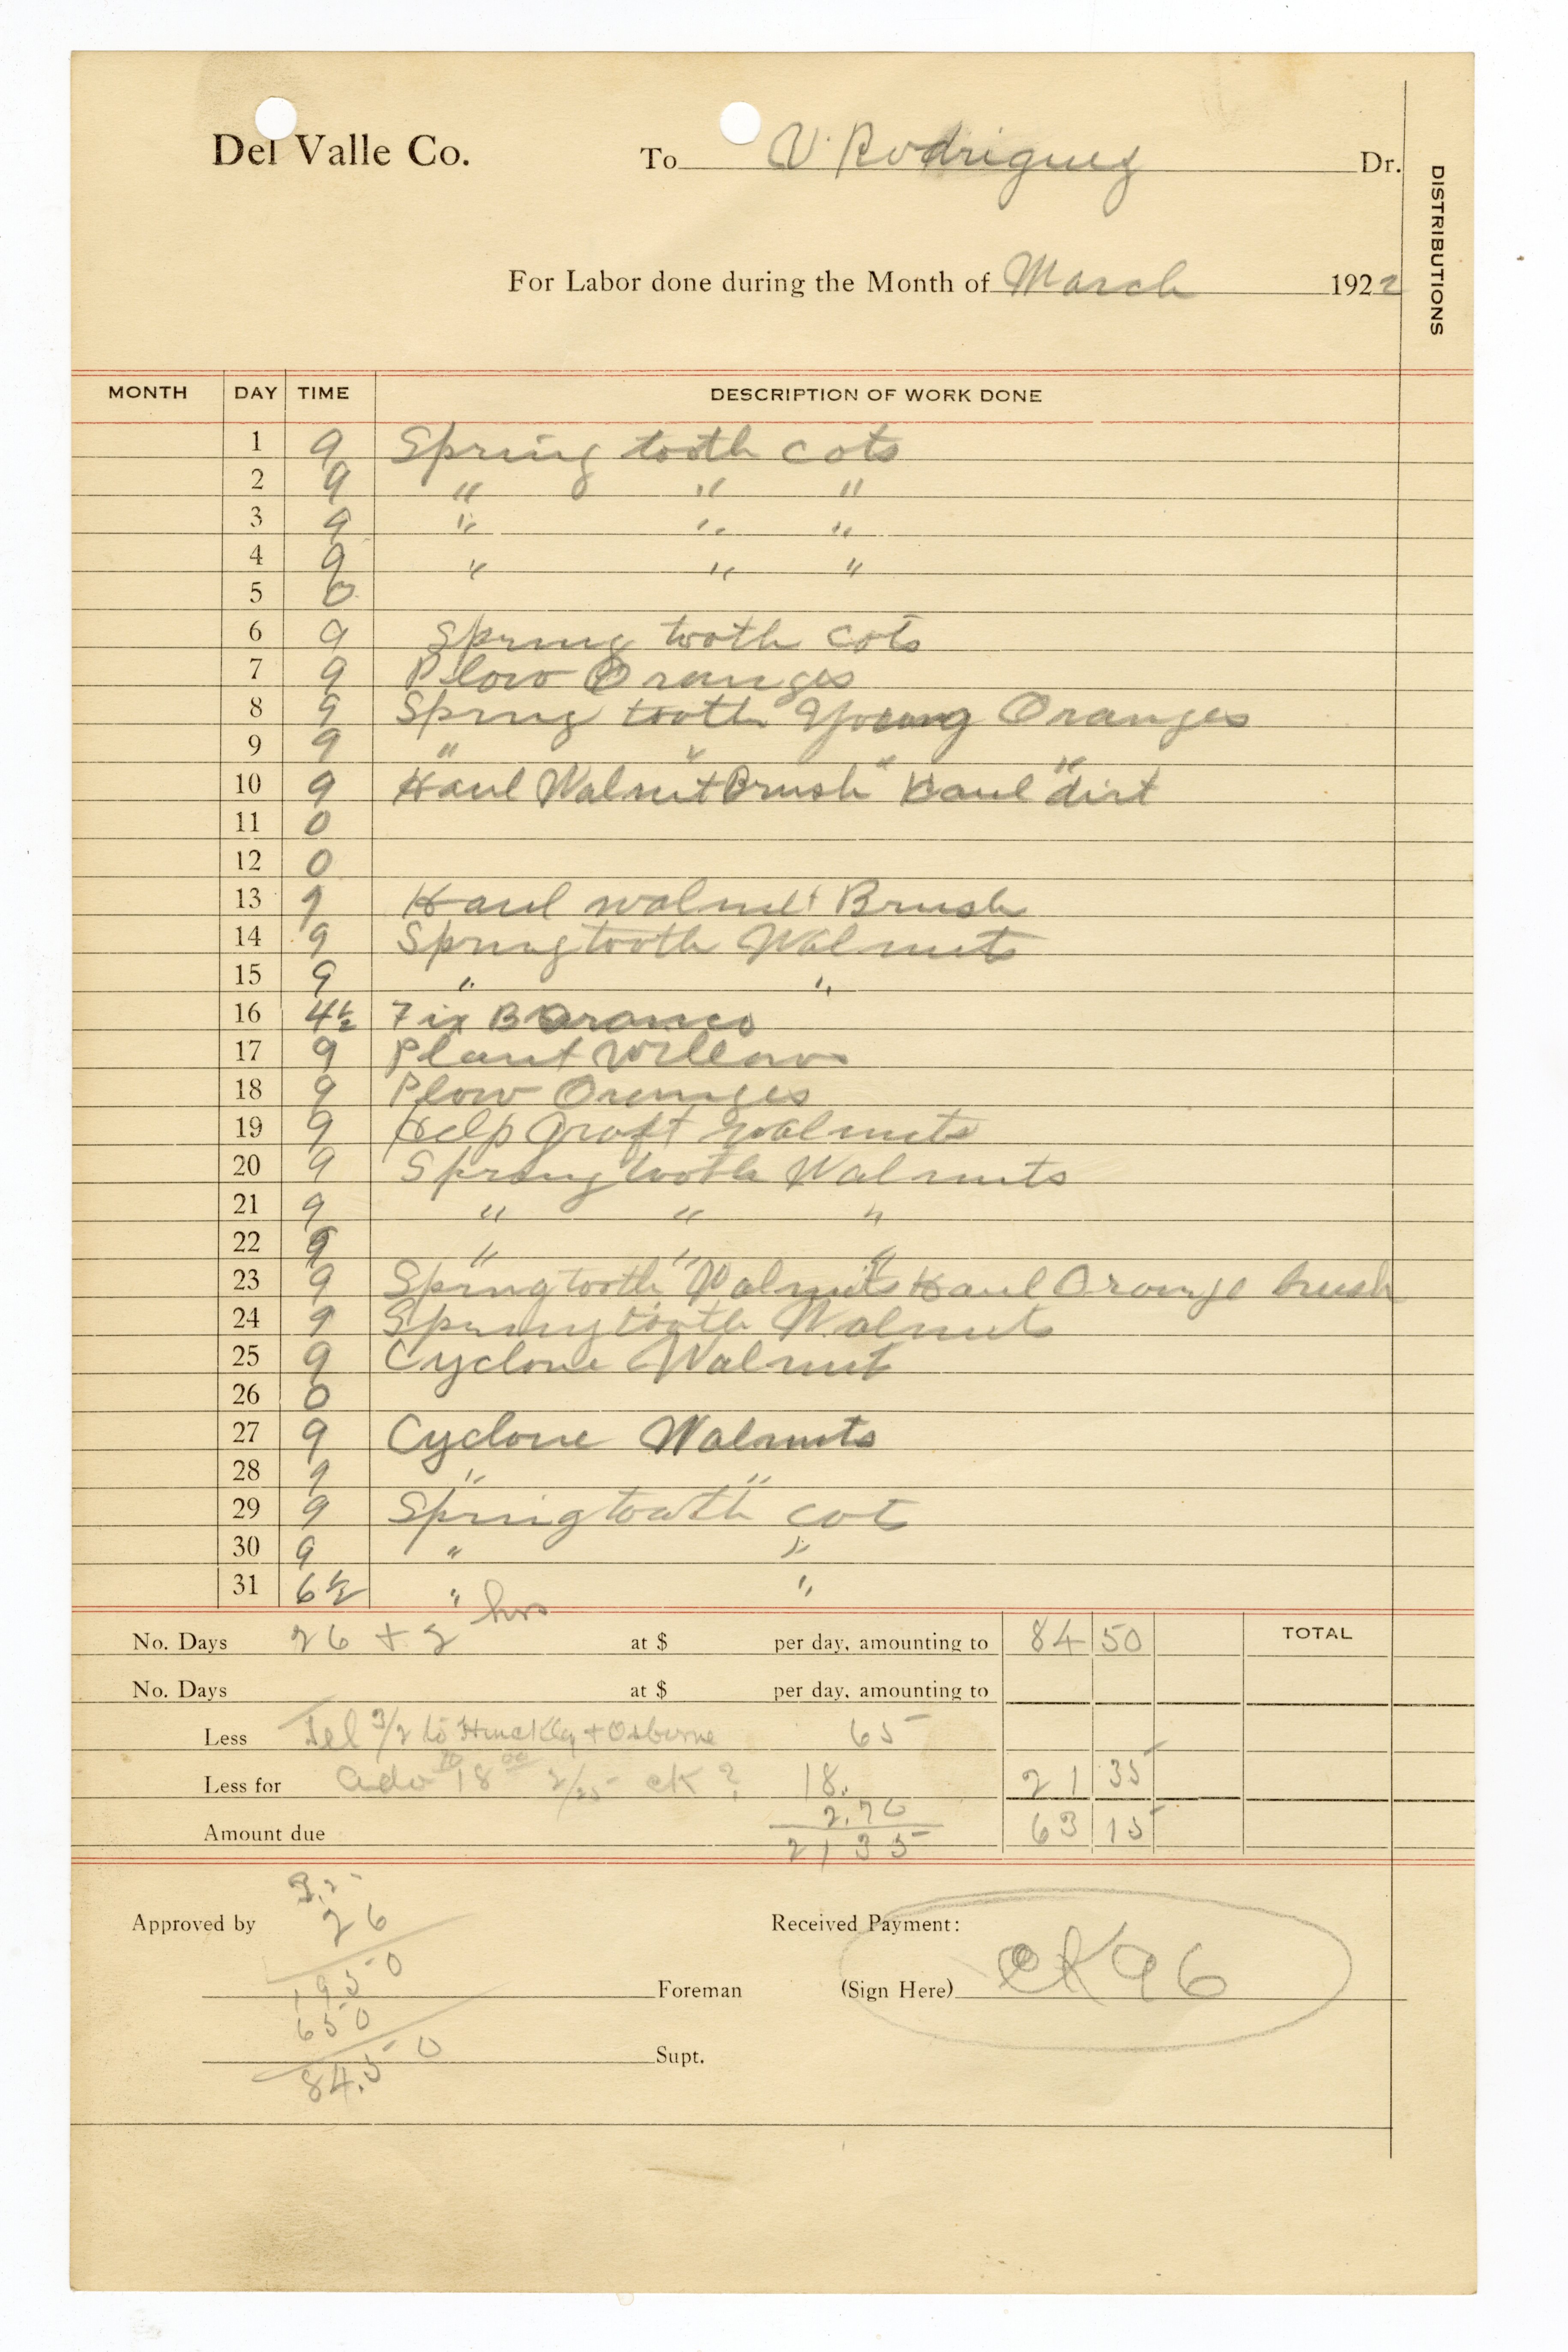 Del Valle Co. To V. Rodriguez Dr.
DISTRIBUTIONS
For Labor done during the Month of March 1922
MONTH DAY TIME DESCRIPTION OF WORK DONE
1 9 Spring tooth cots
2 9 " " "
3 9 " " "
4 9 " " "
5 0
6 9 Spring tooth cots
7 9 Plow Oranges
8 9 Spring tooth Young Oranges
9 9 " " " "
10 9 Haul Walnut Brush Haul dirt
11 0
12 0
13 9 Haul walnut Brush
14 9 Spring tooth Walnuts
15 9 " "
16 4½ Fix
17 9 Plant Willows
18 9 Plow Oranges
19 9 Help Graft Walnuts
20 9 Spring tooth Walnuts
21 9 " " "
22 9 " " "
23 9 Spring tooth Walnuts Haul Orange brush
24 9 Spring tooth Walnuts
25 9 Cyclone Walnut
26 0
27 9 Cyclone Walnuts
28 9 " "
29 9 Spring tooth cot
30 9 " "
31 6½ " "
No. Days 26 + 2 hrs at $ per day, amounting to 84 50 TOTAL
No. Days at $ per day, amounting to
Less Tel 3/2 to Hinckley + Osborne 65
Less for Adv 18 00 2/25 ck ? 18. 21 35
2.70
Amount due 2135 63 15
3.25
Approved by 26 Received Payment:
1950
Foreman (Sign Here) CK 96
650
Supt.
84.50